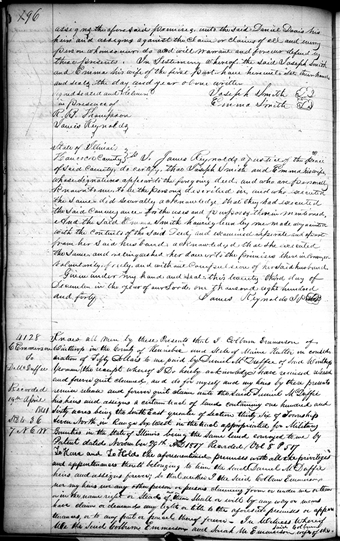 196
assigns the aforesaid premises unto the said Daniel Davis his
heirs and assigns against the claim or claims of all and every
person whomsoever do and will Warrant and forever defend by
these presents. In Testimony whereof the said Joseph Smith
and Emma his wife of the first part have hereunto set their hands
and seals the day and year above written
Joseph Smith
in presence of Emma Smith
R. B. Thompson
James Reynolds
State of Illinois
Hancock County I, James Reynolds a Justice of the Peace
of Said County, do certify, that Joseph Smith and Emma his wife,
whose signatures appear to the foregoing deed, and who are personally
Known to me to be the persons described in and who executed
the same did severally acknowledge that they had executed
the said Conveyance for the uses and purposes therein mentioned,
And the Said Emma Smith having been by me made acquainted
with the contents of the Said Deed, and examined separate and apart
from her Said husband acknowledged that she executed
the same, and relinquished her dower to the premises therein Conveyed
Voluntarily, freely, and without Compulsion of her said husband
Given under my hand and seal this twenty third day of
December in the year of our Lord, one thousand eight hundred
and forty James Reynolds J.P.
1128
C. Emmerson
To
Recorded
19th April
1841
7 N. 6 W.
Know all Men by these Presents that I Colburn Emmerson of
Winthrop in the County of Kennebec and State of Maine Hatter in consid
eration of Fifty Dollars to me paid by
(the receipt whereof I do hereby acknowledge) have remised, released
and forever quit claimed, and do for myself and my heirs by these presents
remise release and forever quit claim unto the said
his heirs and assigns a certain tract of land containing one hundred and
sixty acres being the South East quarter of Section thirty Six of Township
Seven North in Range six West in the tract appropriated for Military
Bounties in the State of Illinois being the same land conveyed to me by
Patent dated
To Have and To Hold the aforementioned premises with all the privileges
and appurtenances thereto belonging to him the said
his heirs and assigns forever So that neither I the said Colburn Emmerson
nor my heirs nor any other person or persons claiming from or under me or them
or in the name right or Stead of them Shall or will by any way or means
have claim or demand any right or title to the aforesaid premises or appur
tenances, or to any part or parcel thereof forever. In Witness Whereof
We the said Colburn Emmerson and Sarah M. Emmerson wife of the